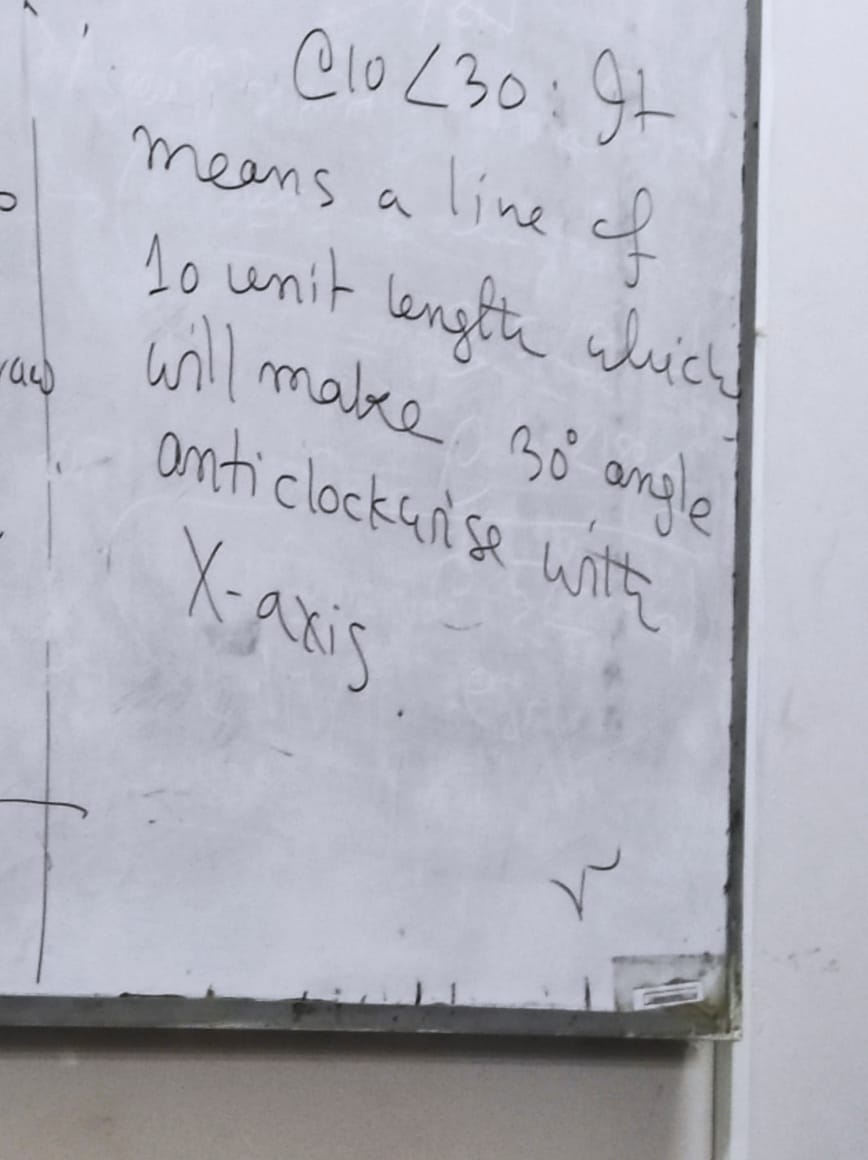 @10<30: It
means a line of
10 unit length which
will make 30° angle
anticlockwise with
X-axis.